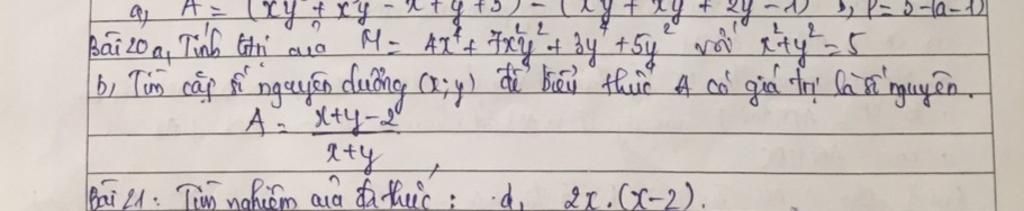 a, A = (xy + xy - x + y + 5) - (xy + xy + 2y - 1) b, P = 5 - (a-1)
Bài 20 a, Tính trị của M = 4x⁴ + 7x²y² + 3y⁴ + 5y² với x² + y² = 5
b, Tìm cặp số nguyên dương (x; y) để biểu thức A có giá trị là số nguyên.
A = x+y-2 / x+y
Bài 21: Tìm nghiệm của đa thức: d, 2x.(x-2).